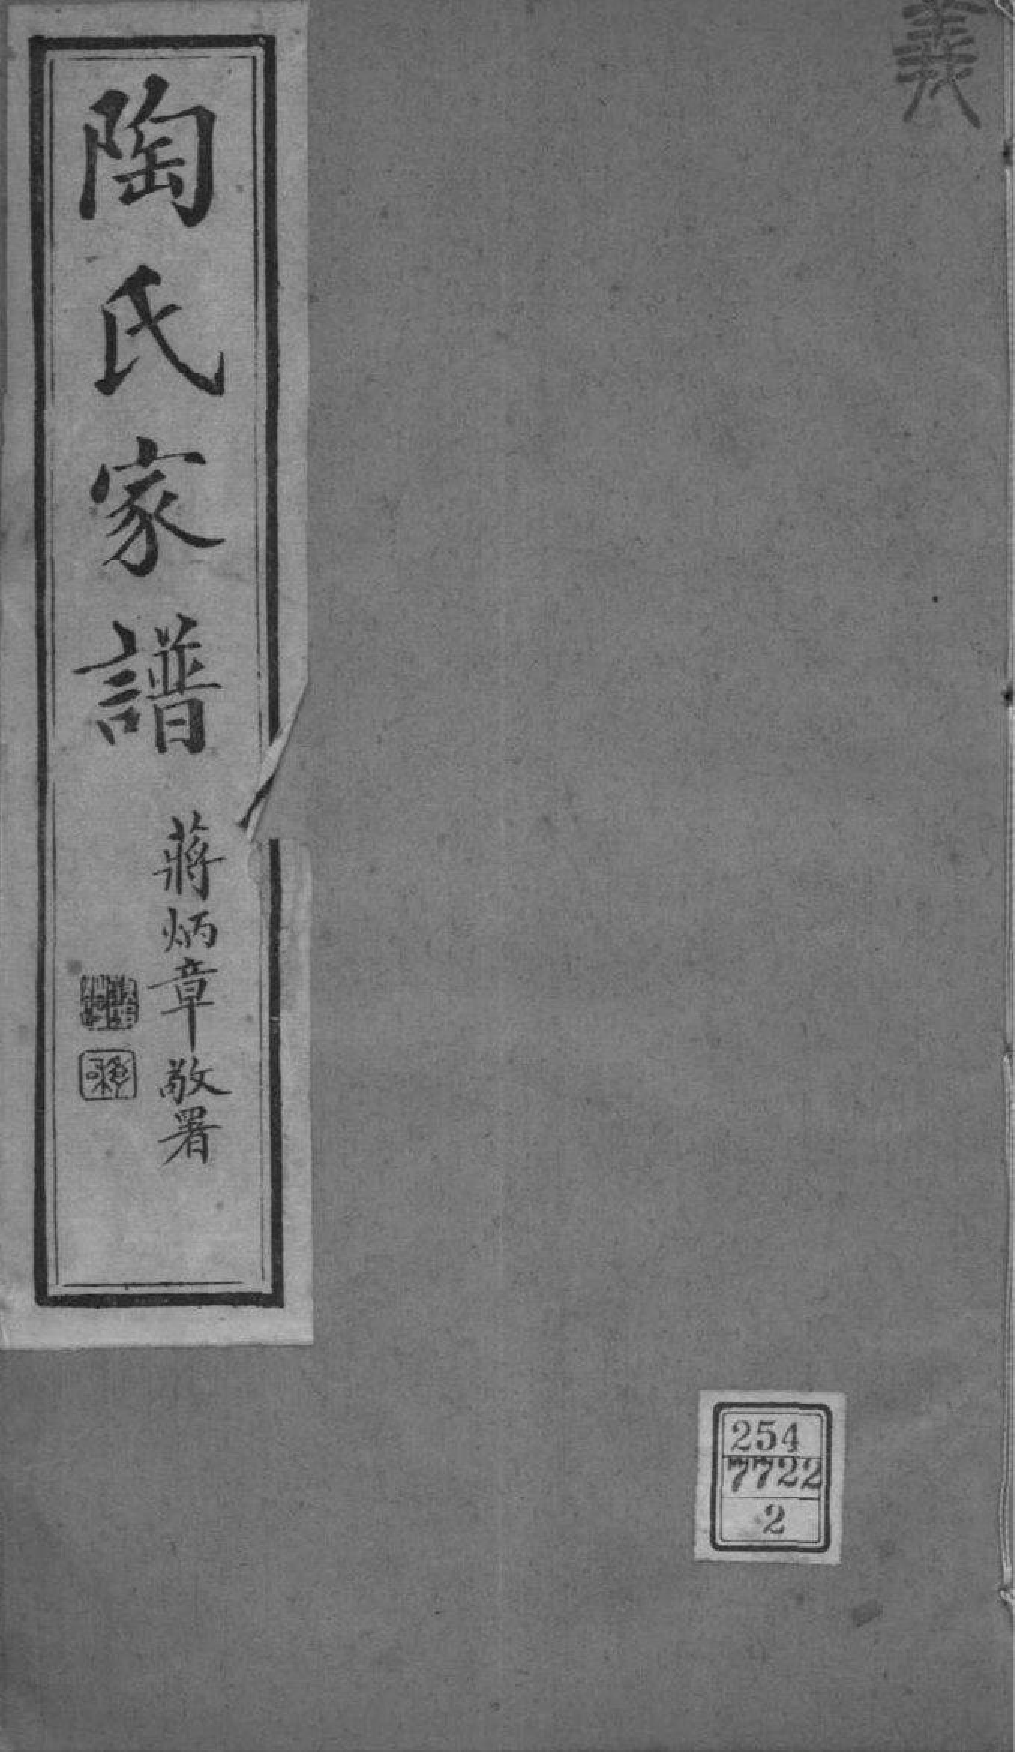 義
陶氏家譜
蔣炳章敬署
254
7722
2